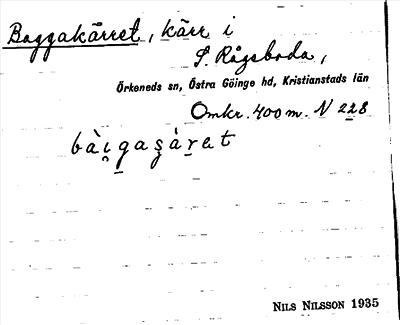 Baggakärret, kärr i
S. Rågsboda,
Örkeneds sn, Östra Göinge hd, Kristianstads län
Omkr. 400 m. N 228
NILS NILSSON 1935